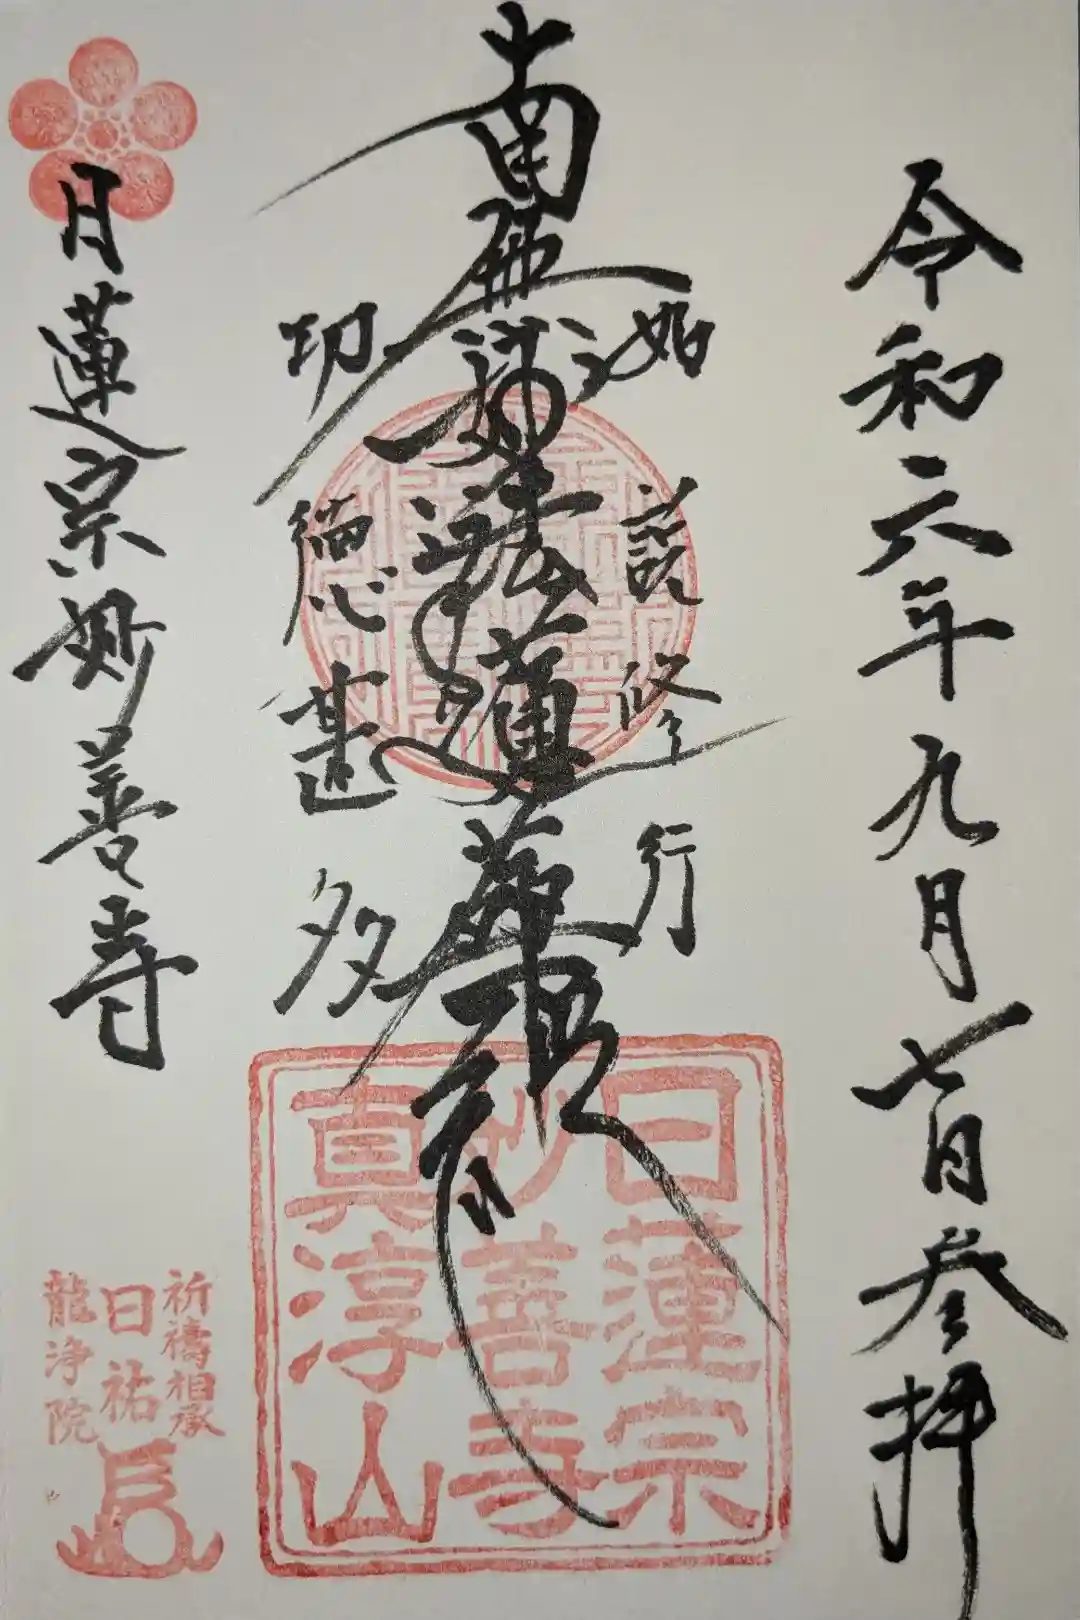 令和六年九月七日参拝
如説修行
南無妙法蓮華経
功徳甚多
日蓮宗妙善寺
日蓮宗
妙善寺
真淳山
祈禱相承
日祐
龍浄院